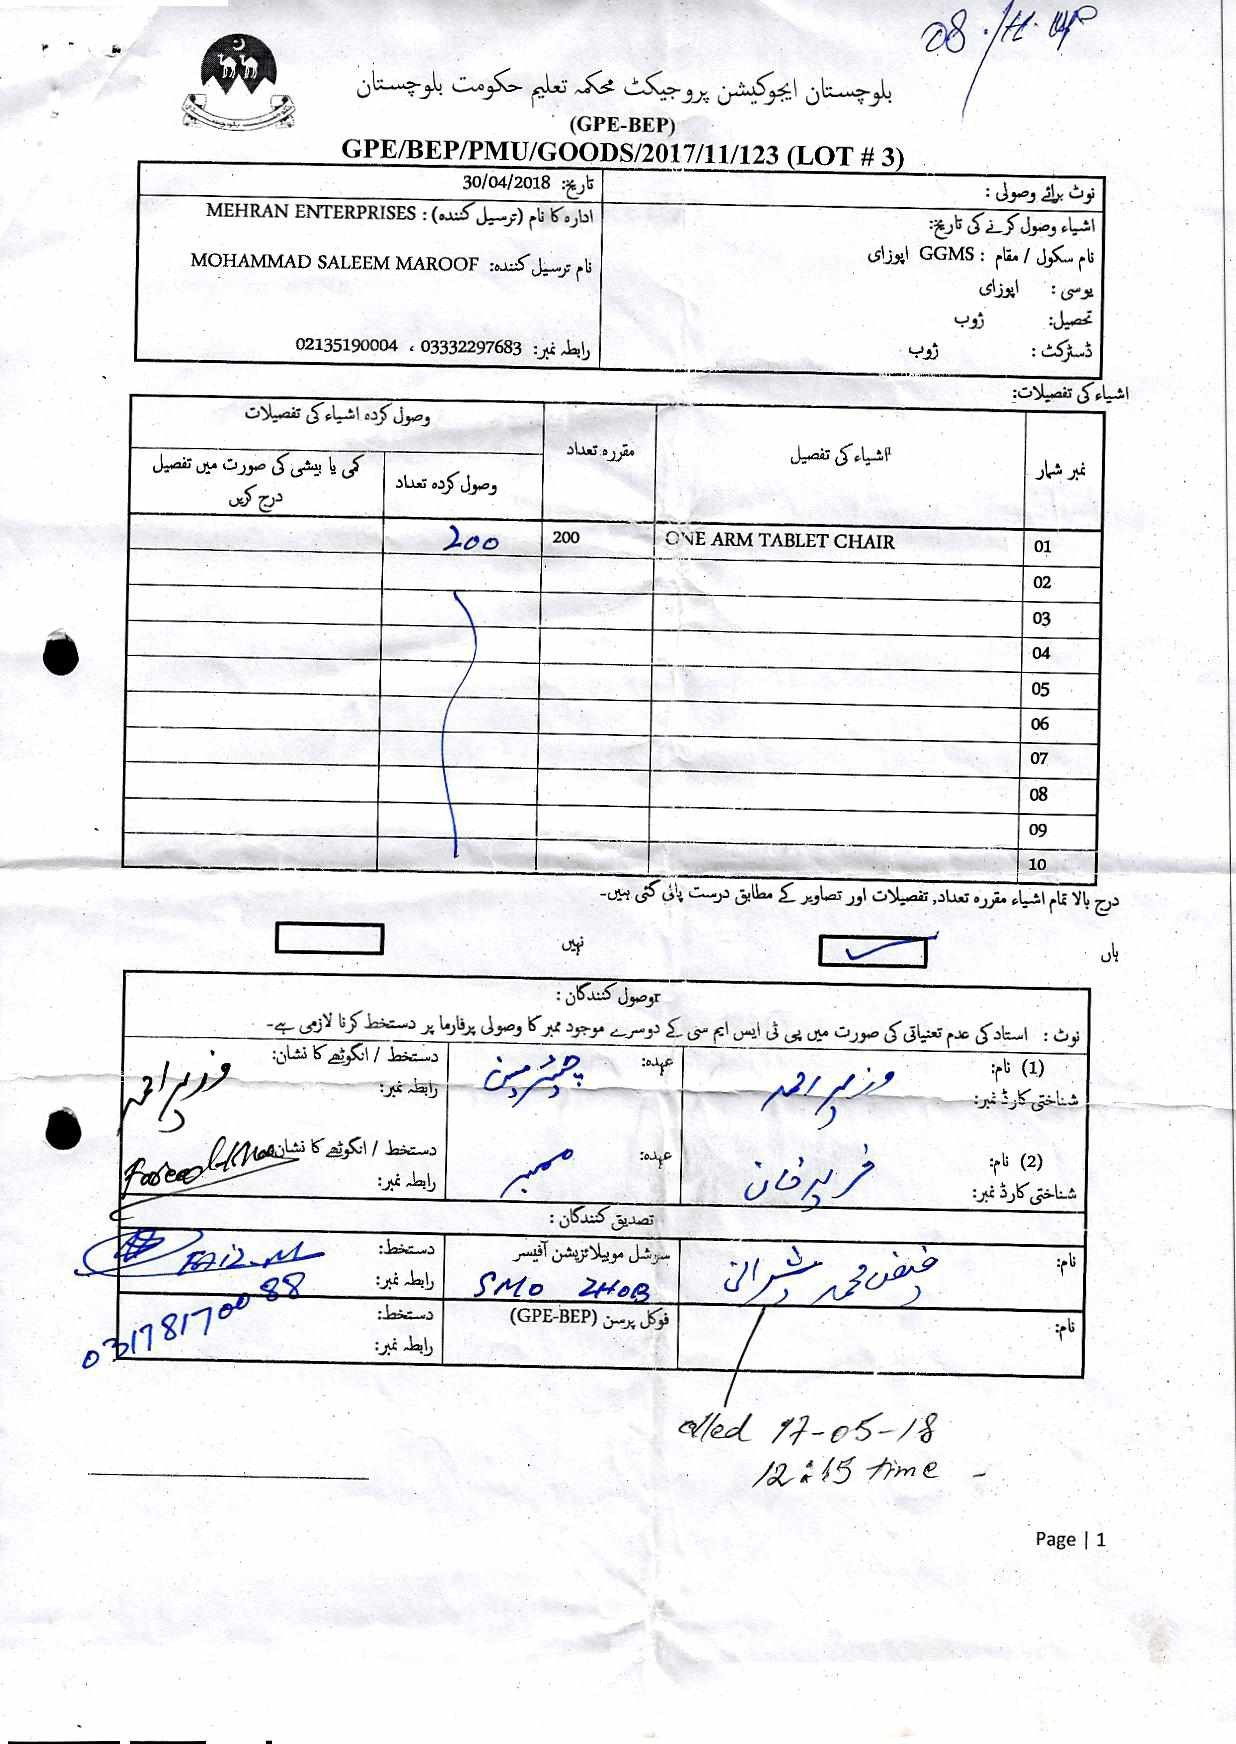 بلوچستان ایجوکیشن پروجیکٹ محکمہ تعلیم حکومت بلوچستان
(GPE-BEP)
GPE/BEP/PMU/GOODS/2017/11/123 (LOT # 3)
نوٹ برائے وصولی :
تاریخ: 30/04/2018
اشیاء وصول کرنے کی تاریخ:
ادارہ کا نام (ترسیل کنندہ) : MEHRAN ENTERPRISES
نام سکول / مقام : GGMS اپوزای
نام ترسیل کنندہ: MOHAMMAD SALEEM MAROOF
یوسی : اپوزای
تحصیل: ژوب
ڈسٹرکٹ : ژوب
رابطہ نمبر: 03332297683 ، 02135190004
اشیاء کی تفصیلات:
نمبر شمار
اشیاء کی تفصیل
مقررہ تعداد
وصول کردہ اشیاء کی تفصیلات
وصول کردہ تعداد
کمی یا بیشی کی صورت میں تفصیل درج کریں
01 ONE ARM TABLET CHAIR 200 200
02
03
04
05
06
07
08
09
10
درج بالا تمام اشیاء مقررہ تعداد, تفصیلات اور تصاویر کے مطابق درست پائی گئی ہیں۔
ہاں
نہیں
وصول کنندگان :
نوٹ : استاد کی عدم تعنیاتی کی صورت میں پی ٹی ایس ایم سی کے دوسرے موجود ممبر کا وصولی پرفارما پر دستخط کرنا لازمی ہے۔
(1) نام: وزیر احمد
عہدہ: چئیرمین
دستخط / انگوٹھے کا نشان: وزیر احمد
شناختی کارڈ نمبر:
رابطہ نمبر:
(2) نام: فرید خان
عہدہ: ممبر
دستخط / انگوٹھے کا نشان: Fareed Khan
شناختی کارڈ نمبر:
رابطہ نمبر:
تصدیق کنندگان :
نام: فیض محمد شیرانی
سوشل موبیلائزیشن آفیسر
SMO ZHOB
دستخط:
رابطہ نمبر: 03178170088
نام:
فوکل پرسن (GPE-BEP)
دستخط:
رابطہ نمبر:
called 17-05-18
12:15 time
Page | 1